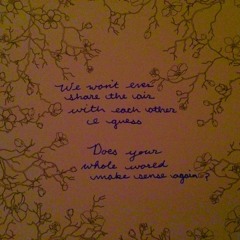 We won't ever
share the air
with each other
I guess
Does your
whole world
make sense again?